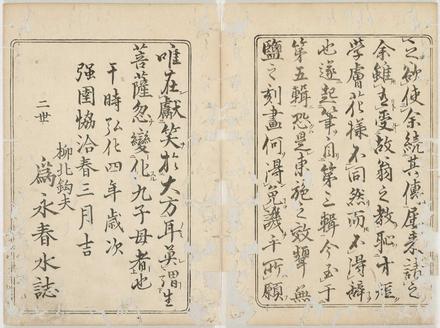 之乞使余統其傳屢來請之
余雖曽受故翁之教恥才淺
学膚花樣不同然而不得辭
也遂起筆自第三輯今至于
第五輯恐是東施之效顰無
鹽之刻畫何得免譏乎所願
唯在獻笑於大方耳莫謂生
菩薩忽變化九子母者也
于時弘化四年歳次
强圉協洽春三月吉
柳北釣夫
二世
為永春水誌